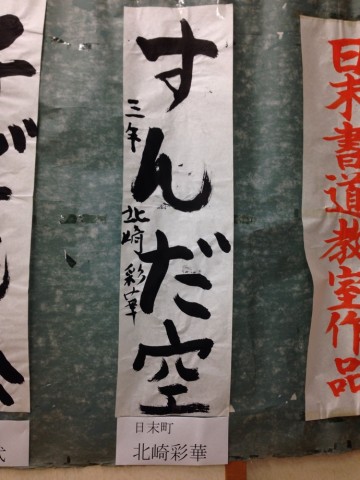 日末書道教室作品
すんだ空
三年 北崎彩華
日末町
北崎彩華